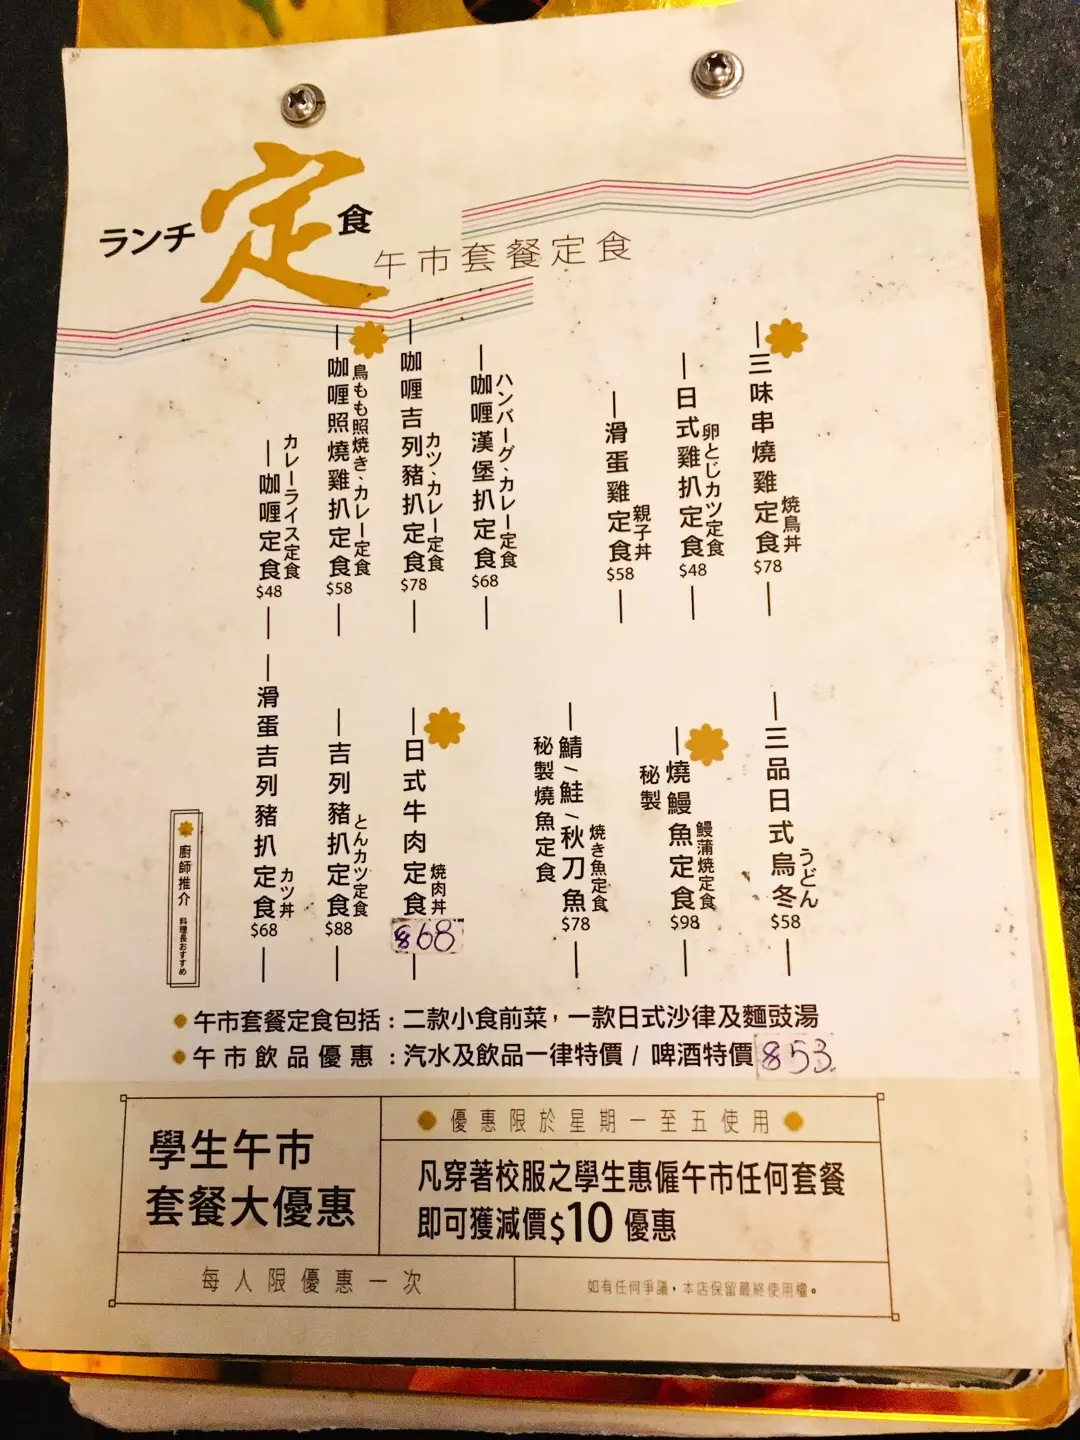 ランチ定食
午市套餐定食
三味串燒雞定食
焼鳥丼
$78
日式雞扒定食
卵とじカツ定食
$48
滑蛋雞定食
親子丼
$58
咖喱漢堡扒定食
ハンバーグ、カレー定食
$68
咖喱吉列豬扒定食
カツ、カレー定食
$78
咖喱照燒雞扒定食
鳥もも照焼き、カレー定食
$58
咖喱定食
カレーライス定食
$48
三品日式烏冬
うどん
$58
秘製
燒鰻魚定食
鰻蒲焼定食
$98
鯖/鮭/秋刀魚
秘製燒魚定食
焼き魚定食
$78
日式牛肉定食
焼肉丼
$68
吉列豬扒定食
とんカツ定食
$88
滑蛋吉列豬扒定食
カツ丼
$68
廚師推介
料理長おすすめ
午市套餐定食包括：二款小食前菜，一款日式沙律及麵豉湯
午市飲品優惠：汽水及飲品一律特價 / 啤酒特價 $53
學生午市
套餐大優惠
優惠限於星期一至五使用
凡穿著校服之學生惠僱午市任何套餐
即可獲減價$10 優惠
每人限優惠一次
如有任何爭議，本店保留最終使用權。